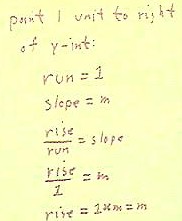 point 1 unit to right
of y-int:
run = 1
slope = m
rise/run = slope
rise/1 = m
rise = 1×m = m